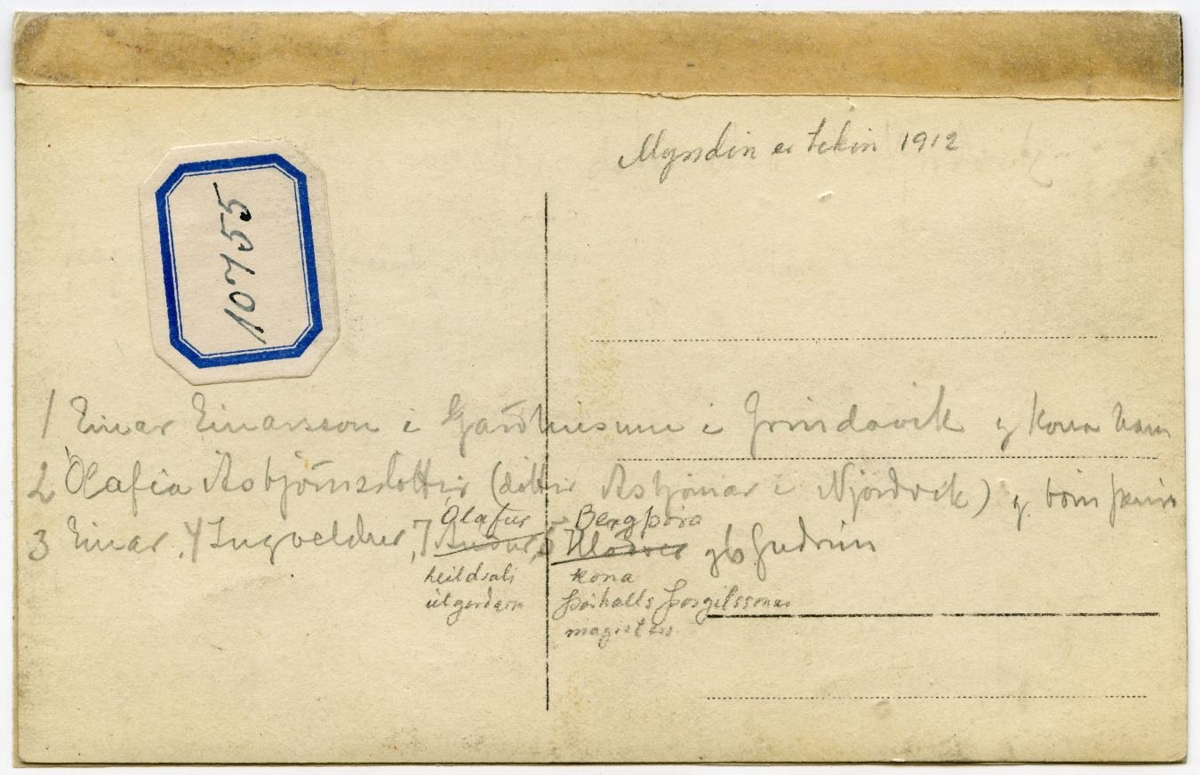 Myndin er tekin 1912
10755
1 Einar Einarsson í Garðhúsum í Grindavík og kona hans
2 Ólafía Ásbjörnsdóttir (dóttir Ásbjörnar í Njarðvík) og börn þeirra
Ólafur Bergþóra
3 Einar, 4 Ingveldur, 7 5 og 6 Guðrún
heildsali kona
útgerðarm Þórhalls Þorgilssonar
magisters.